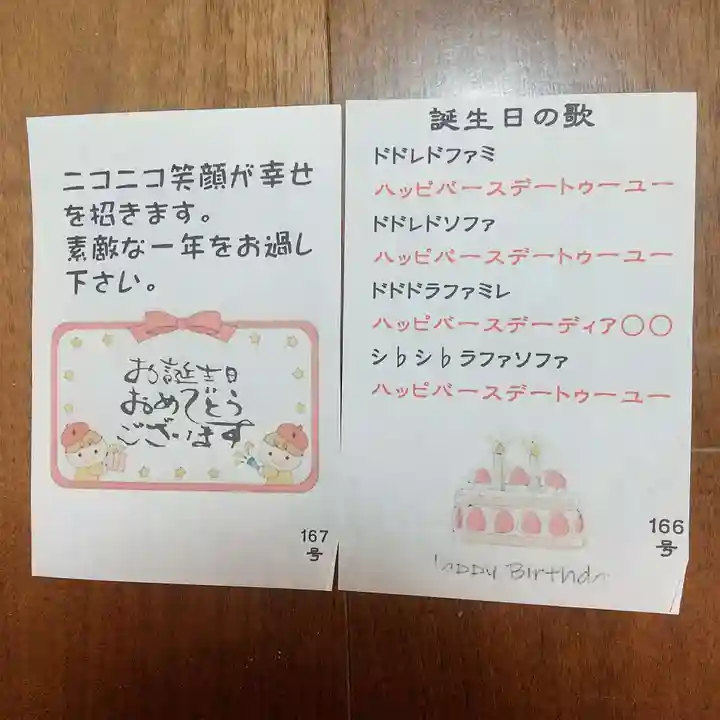 ニコニコ笑顔が幸せ
を招きます。
素敵な一年をお過し
下さい。
お誕生日
おめでとう
ございます
167
号
誕生日の歌
ドドレドファミ
ハッピバースデートゥーユー
ドドレドソファ
ハッピバースデートゥーユー
ドドドラファミレ
ハッピバースデーディア〇〇
シ♭シ♭ラファソファ
ハッピバースデートゥーユー
166
号